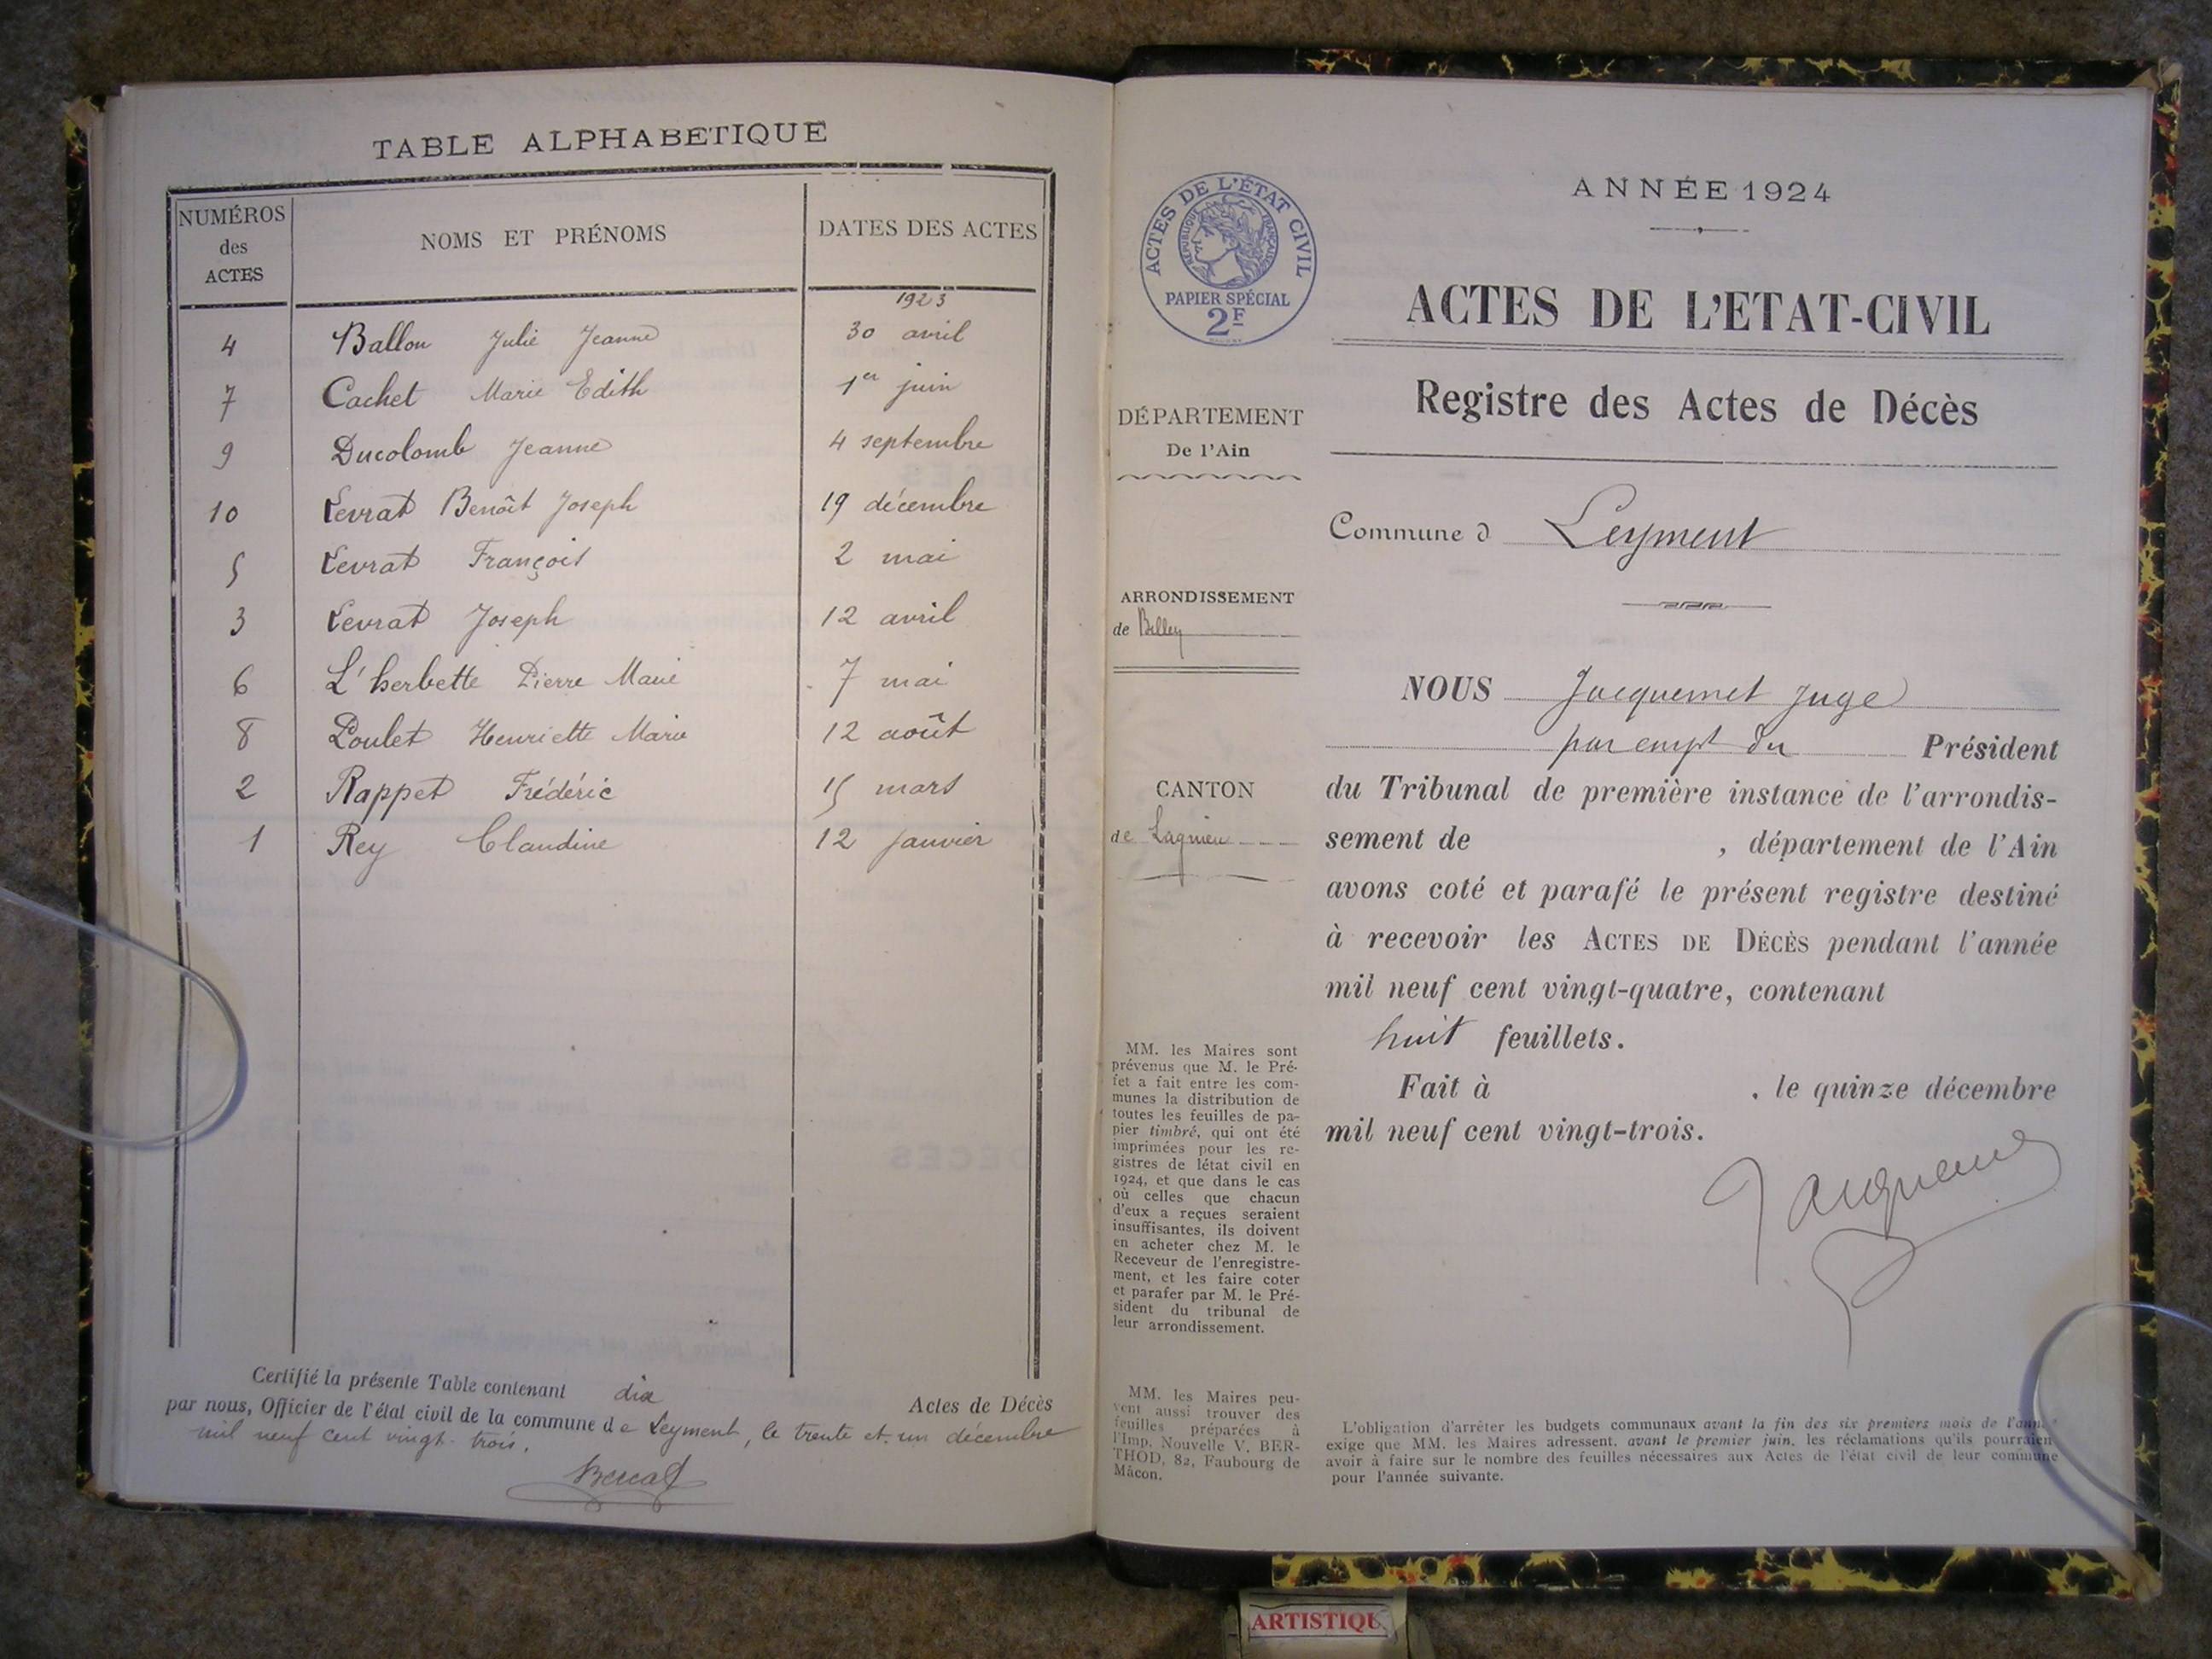 TABLE ALPHABETIQUE
NUMÉROS des ACTES NOMS ET PRÉNOMS DATES DES ACTES
1923
4 Ballon Julie Jeanne 30 avril
7 Cachet Marie Edith 1er juin
9 Ducolomb Jeanne 4 septembre
10 Levrat Benoît Joseph 19 décembre
5 Levrat François 2 mai
3 Levrat Joseph 12 avril
6 L'herbette Pierre Marie 7 mai
8 Poulet Henriette Marie 12 août
2 Rappet Frédéric 15 mars
1 Rey Claudine 12 janvier
Certifié la présente Table contenant dix Actes de Décès
par nous, Officier de l'état civil de la commune de Leyment, le trente et un décembre
mil neuf cent vingt-trois.
ACTES DE L'ÉTAT CIVIL
RÉPUBLIQUE FRANÇAISE
PAPIER SPÉCIAL
2F
DÉPARTEMENT
De l'Ain
ARRONDISSEMENT
de Belley
CANTON
de Lagnieu
MM. les Maires sont
prévenus que M. le Pré-
fet a fait entre les com-
munes la distribution de
toutes les feuilles de pa-
pier timbré, qui ont été
imprimées pour les re-
gistres de létat civil en
1924, et que dans le cas
où celles que chacun
d'eux a reçues seraient
insuffisantes, ils doivent
en acheter chez M. le
Receveur de l'enregistre-
ment, et les faire coter
et parafer par M. le Pré-
sident du tribunal de
leur arrondissement.
MM. les Maires peu-
vent aussi trouver des
feuilles préparées à
l'Imp. Nouvelle V. BER-
THOD, 82, Faubourg de
Mâcon.
ANNÉE 1924
ACTES DE L'ETAT-CIVIL
Registre des Actes de Décès
Commune d Leyment
NOUS Jacquemet Juge
par empt du Président
du Tribunal de première instance de l'arrondis-
sement de , département de l'Ain
avons coté et parafé le présent registre destiné
à recevoir les ACTES DE DÉCÈS pendant l'année
mil neuf cent vingt-quatre, contenant
huit feuillets.
Fait à , le quinze décembre
mil neuf cent vingt-trois.
L'obligation d'arrêter les budgets communaux avant la fin des six premiers mois de l'ann
exige que MM. les Maires adressent, avant le premier juin, les réclamations qu'ils pourraien
avoir à faire sur le nombre des feuilles nécessaires aux Actes de l'état civil de leur commune
pour l'année suivante.
ARTISTIQU